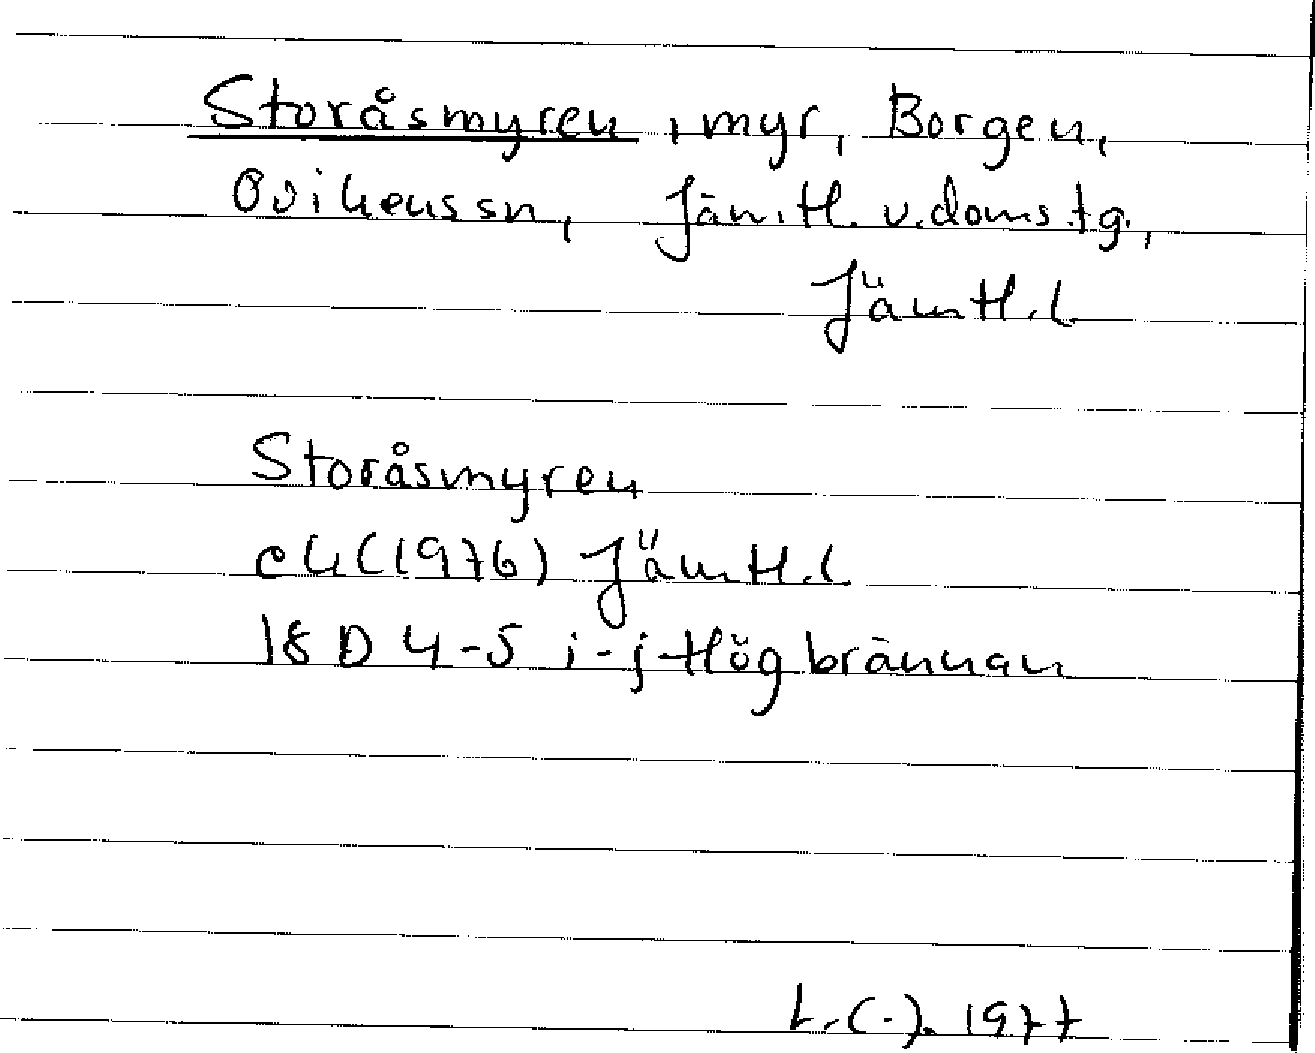 Storåsmyren, myr, Borgen,
Ovikens sn, Jämtl. v. doms. tg.,
Jämtl. l
Storåsmyren
ek (1976) Jämtl. l
18 D 4-5 i-j Högbrännan
1977